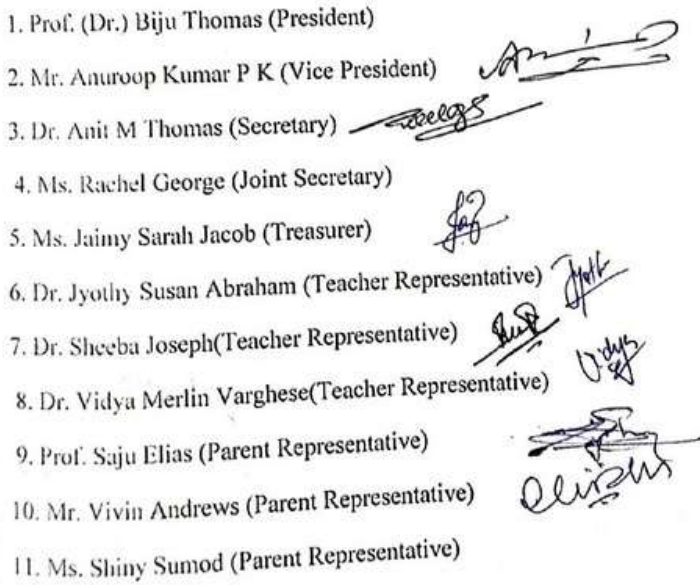 1. Prof. (Dr.) Biju Thomas (President)
2. Mr. Anuroop Kumar P K (Vice President)
3. Dr. Anit M Thomas (Secretary)
4. Ms. Rachel George (Joint Secretary)
5. Ms. Jaimy Sarah Jacob (Treasurer)
6. Dr. Jyothy Susan Abraham (Teacher Representative)
7. Dr. Sheeba Joseph(Teacher Representative)
8. Dr. Vidya Merlin Varghese(Teacher Representative) Vidya
9. Prof. Saju Elias (Parent Representative)
10. Mr. Vivin Andrews (Parent Representative)
11. Ms. Shiny Sumod (Parent Representative)